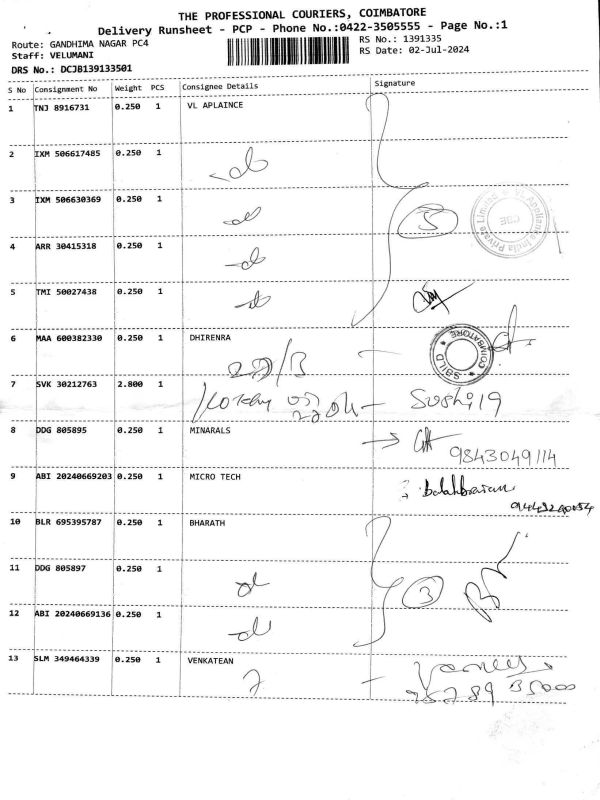 THE PROFESSIONAL COURIERS, COIMBATORE
Delivery Runsheet - PCP - Phone No.:0422-3505555 - Page No.:1
Route: GANDHIMA NAGAR PC4
RS No.: 1391335
Staff: VELUMANI
RS Date: 02-Jul-2024
DRS No.: DCJB139133501
S No Consignment No Weight PCS Consignee Details Signature
1 TNJ 8916731 0.250 1 VL APLAINCE
2 IXM 506617485 0.250 1
3 IXM 506630369 0.250 1
5
4 ARR 30415318 0.250 1
5 TMI 50027438 0.250 1
6 MAA 600382330 0.250 1 DHIRENRA
7 SVK 30212763 2.800 1
8 DDG 805895 0.250 1 MINARALS
9843049114
9 ABI 20240669203 0.250 1 MICRO TECH
10 BLR 695395787 0.250 1 BHARATH
11 DDG 805897 0.250 1
3
12 ABI 20240669136 0.250 1
13 SLM 349464339 0.250 1 VENKATEAN